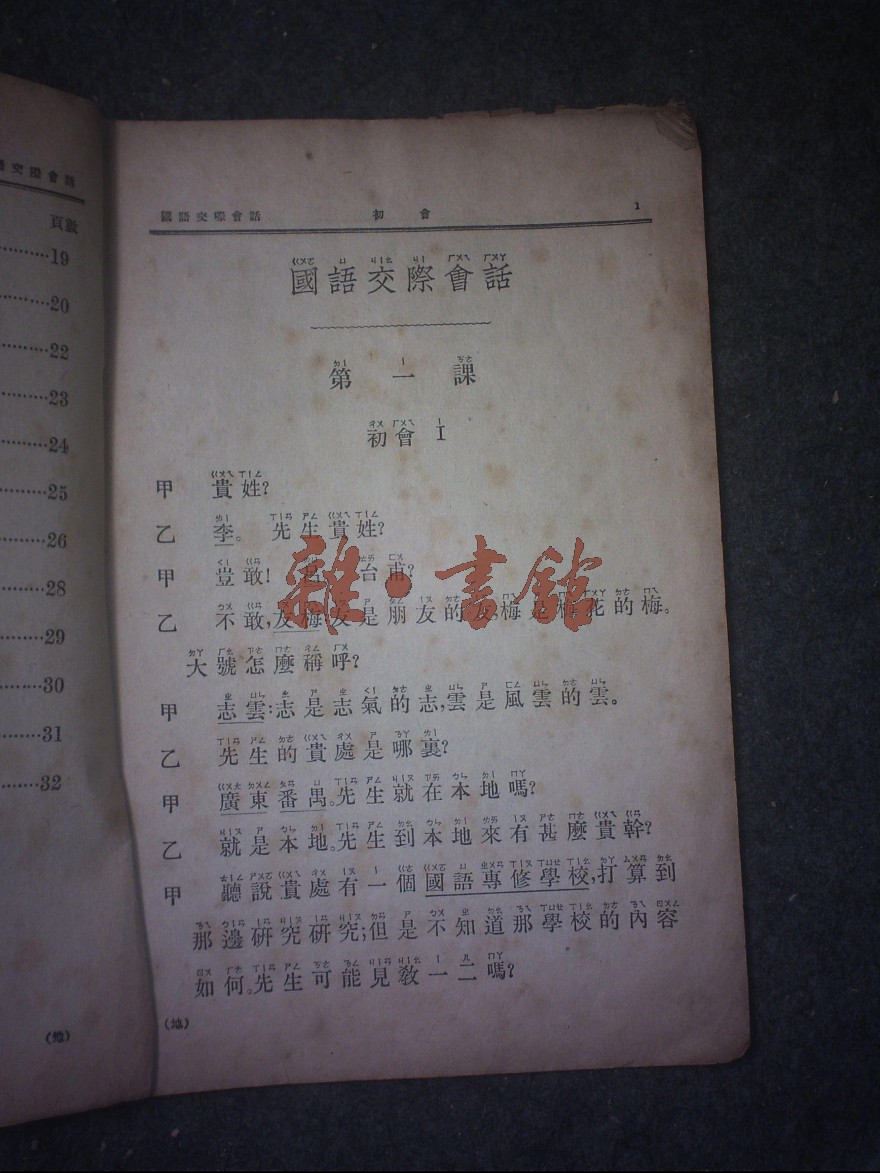 語交際會話
頁數
19
20
22
23
24
25
26
28
29
30
31
32
(總)
國語交際會話 初會 1
ㄍㄨㄛ ㄩ ㄐㄧㄠ ㄐㄧ ㄏㄨㄟ ㄏㄨㄚ
國語交際會話
ㄉㄧ ㄧ ㄎㄜ
第一課
ㄔㄨ ㄏㄨㄟ ㄧ
初會 I
ㄍㄨㄟ ㄒㄧㄥ
甲 貴姓?
ㄌㄧ ㄒㄧㄢ ㄕㄥ ㄍㄨㄟ ㄒㄧㄥ
乙 李。先生貴姓?
ㄑㄧ ㄍㄢ ㄊㄞ ㄈㄨ
甲 豈敢! 台甫?
乙 不敢,友梅:友是朋友的友,梅是梅花的梅。
大號怎麼稱呼?
甲 志雲:志是志氣的志,雲是風雲的雲。
乙 先生的貴處是哪裏?
甲 廣東番禺。先生就在本地嗎?
乙 就是本地。先生到本地來有甚麼貴幹?
甲 聽說貴處有一個國語專修學校,打算到
那邊研究研究;但是不知道那學校的內容
如何。先生可能見敎一二嗎?
雜·書館